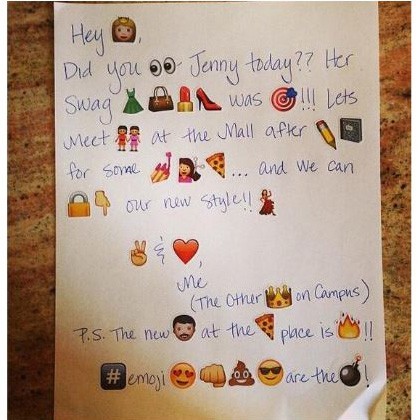 Hey 👸,
Did you 👀 Jenny today?? Her
Swag 👗👜💄👠 was 🎯!!! Lets
Meet 👭 at the Mall after ✏️📓
for some 💅💇🍕... and we can
🔒👇 our new style!! 💃
✌️ & ❤️,
Me
(The Other 👑 on Campus)
P.S. The new 👨 at the 🍕 place is 🔥!!
#️⃣ emoji 😍👊💩😎 are the 💣!